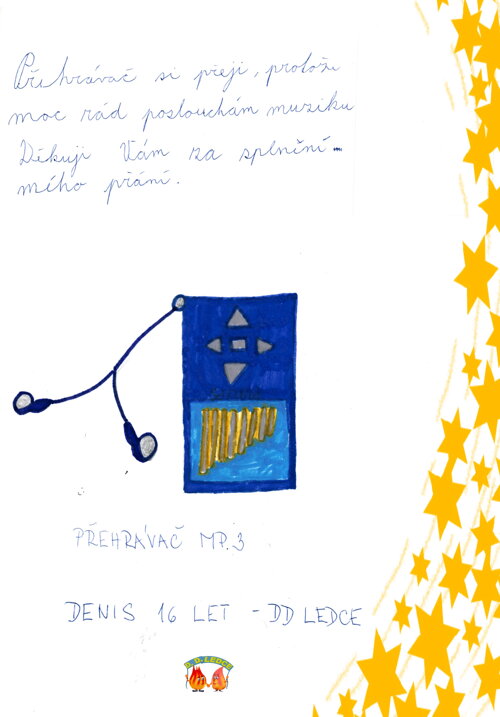 Přehrávač si přeji, protože
moc rád poslouchám muziku
Děkuji Vám za splnění
mího přání.
PŘEHRÁVAČ MP.3
DENIS 16 LET - DD LEDCE
D.D-LEDCE